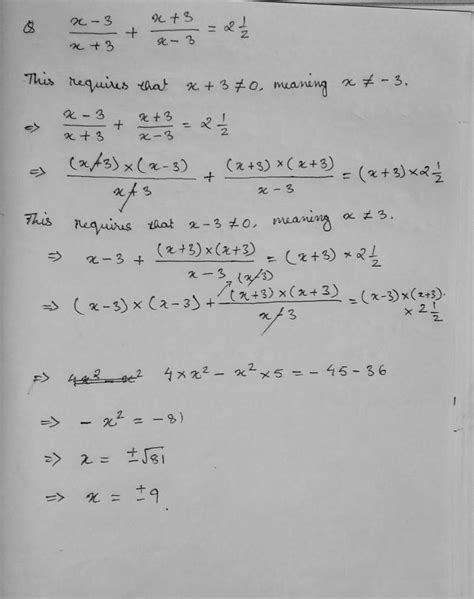 Q (x-3)/(x+3) + (x+3)/(x-3) = 2 1/2
This requires that x + 3 ≠ 0, meaning x ≠ -3.
⇒ (x-3)/(x+3) + (x+3)/(x-3) = 2 1/2
⇒ ((x+3)×(x-3))/(x+3) + ((x+3)×(x+3))/(x-3) = (x+3)×2 1/2
This requires that x-3 ≠ 0, meaning x ≠ 3.
⇒ x-3 + ((x+3)×(x+3))/(x-3) = (x+3) × 2 1/2
⇒ (x-3)×(x-3) + (x-3) ((x+3)×(x+3))/(x-3) = (x-3)×(x+3). × 2 1/2
⇒ 4x² - x² 4×x² - x²×5 = -45-36
⇒ - x² = -81
⇒ x = ±√81
⇒ x = ±9.